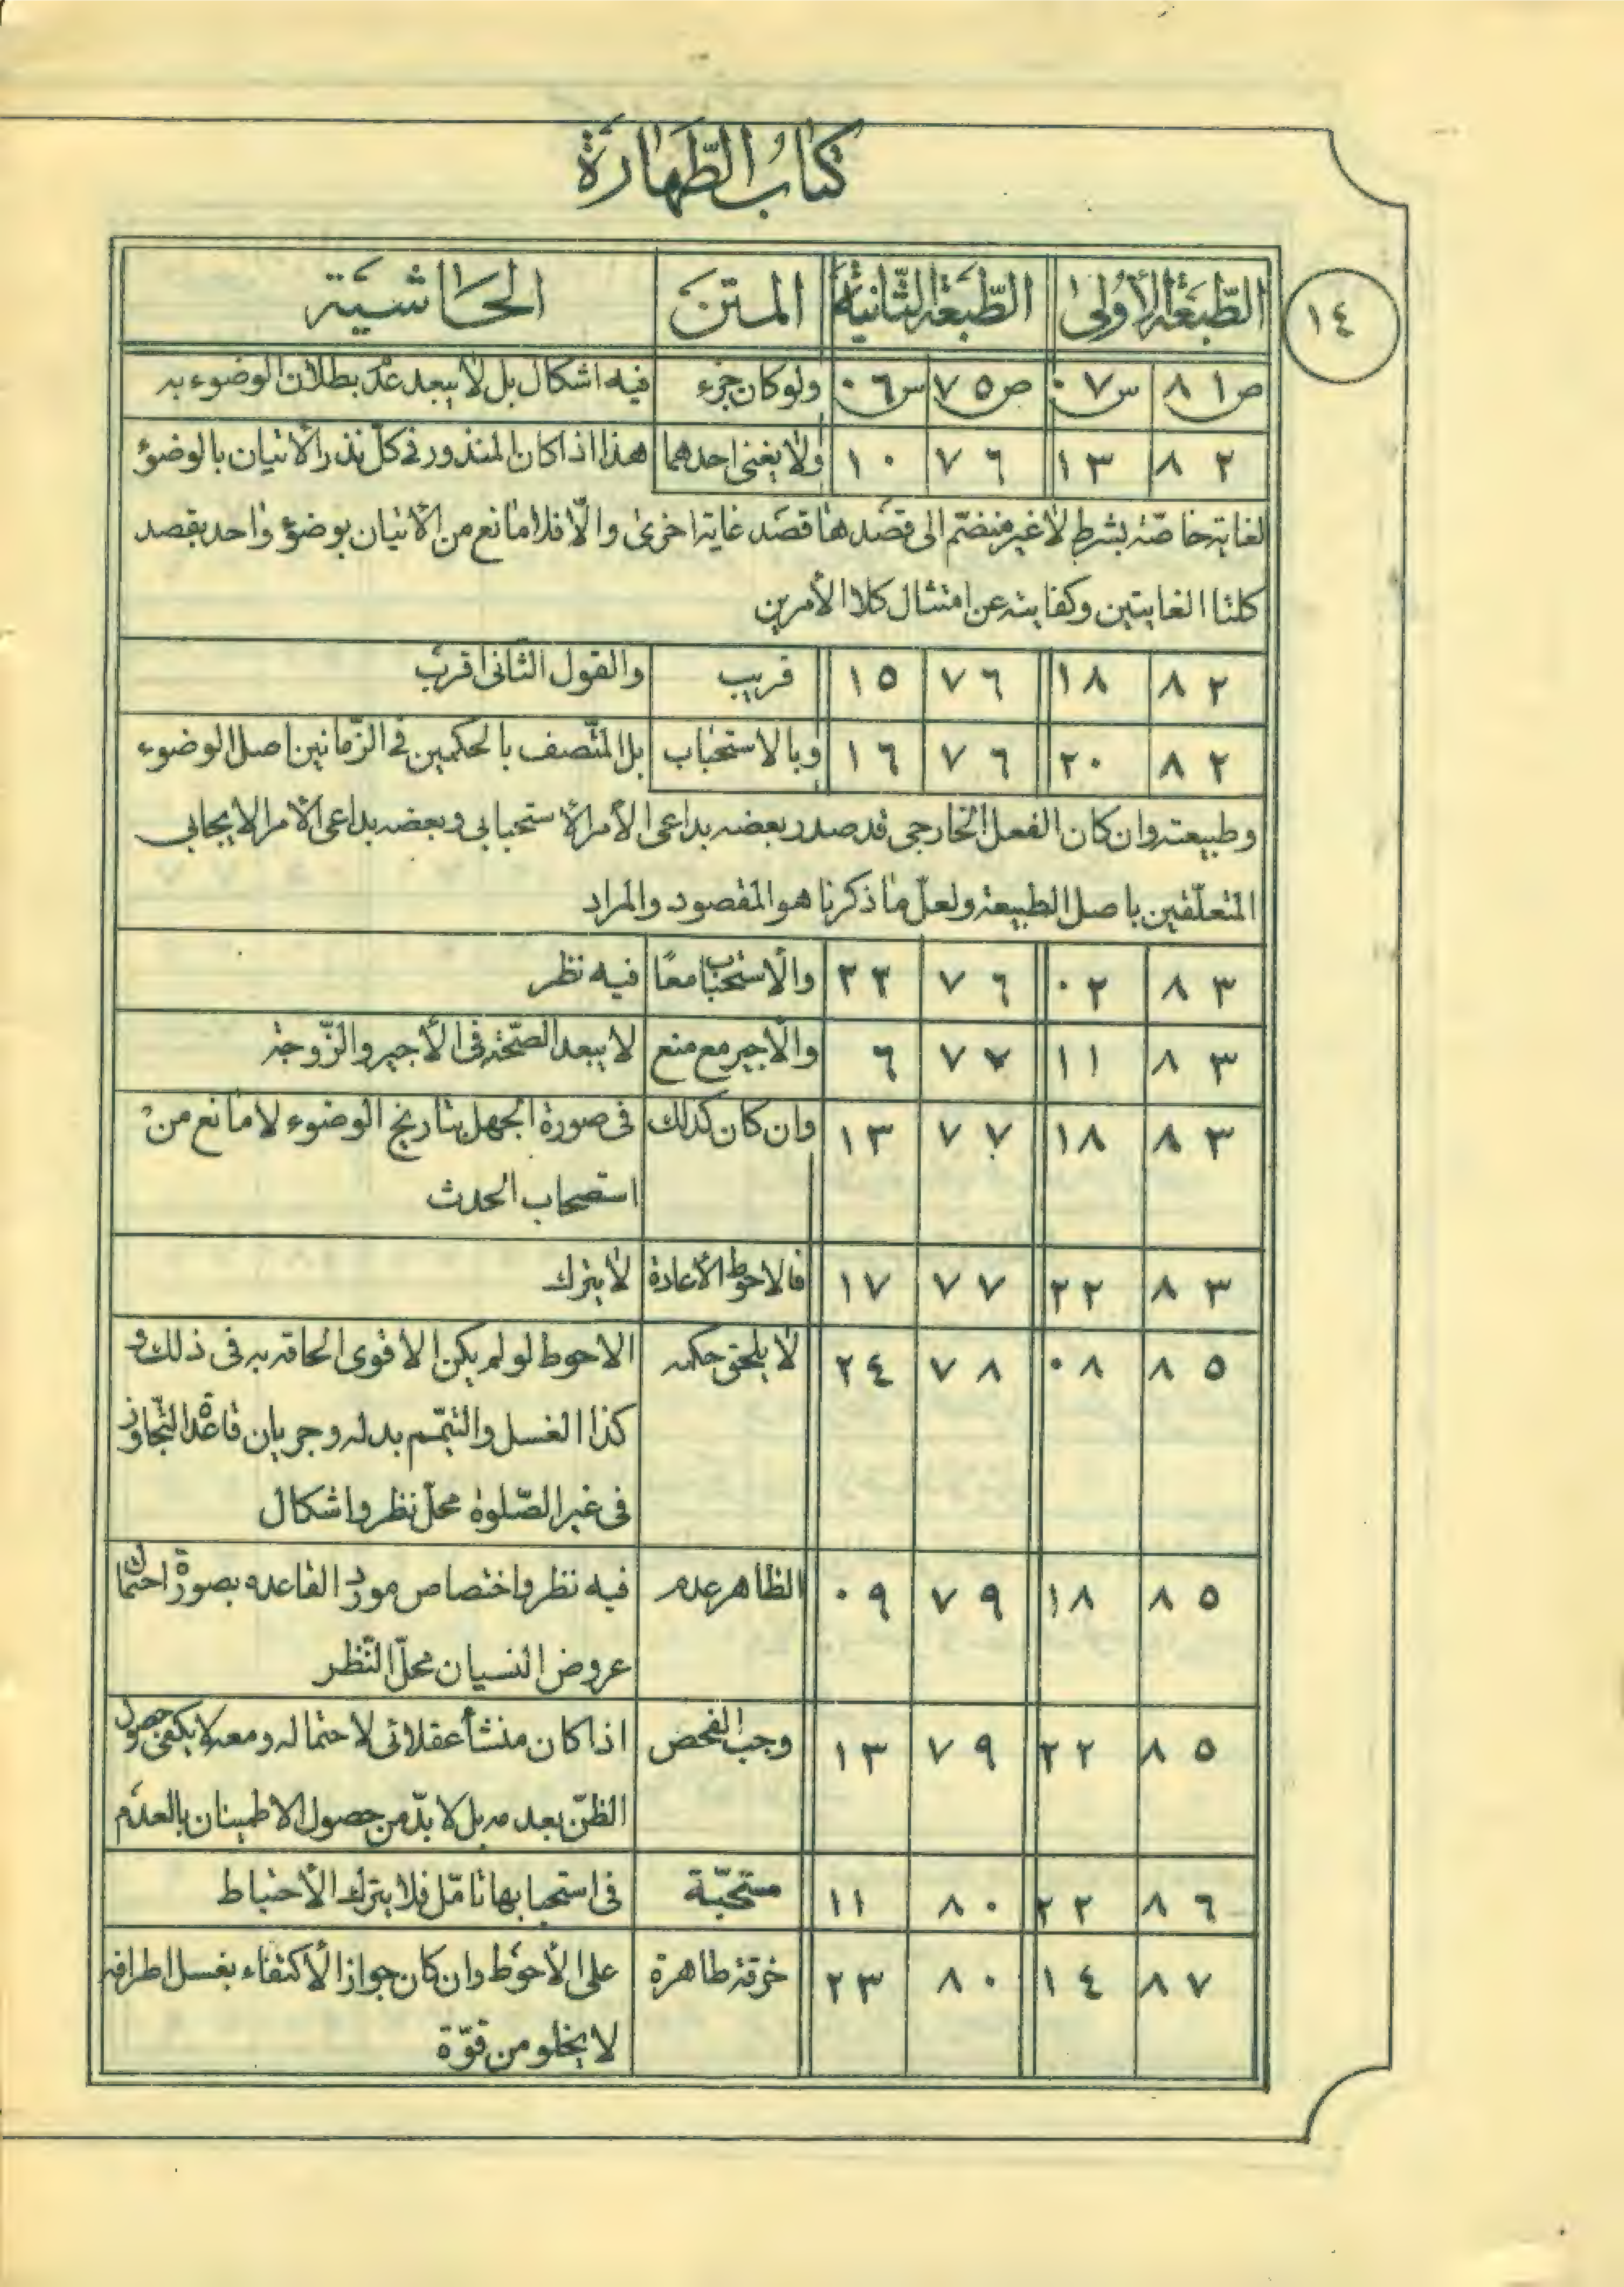 كتاب الطّهارة
١٤
الطّبعة الأولى الطّبعة الثّانية المتن الحاشية
ص ٨١ س ٠٧ ص ٧٥ س ٠٦ ولو كان جزء فيه اشكال بل لا يبعد عدم بطلان الوضوء به
٨٢ ١٣ ٧٦ ١٠ ولا يغنى احدهما هذا اذا كان المنذور فى كلّ نذر الأتيان بالوضوء
لغاية خاصّة بشرط لا غير منضمّ الى قصدها قصد غاية اخرى والّا فلا مانع من الأتيان بوضوء واحد بقصد
كلتا الغايتين وكفايته عن امتثال كلا الأمرين
٨٢ ١٨ ٧٦ ١٥ قريب والقول الثانى اقرب
٨٢ ٢٠ ٧٦ ١٦ وبالاستحباب بل المتّصف بالحكمين فى الزّمانين اصل الوضوء
وطبيعته وان كان الفعل الخارجى قد صدر بعضه بداعى الأمر الأستحبابى وبعضه بداعى الأمر الايجابى
المتعلّقين باصل الطبيعة ولعلّ ما ذكرنا هو المقصود والمراد
٨٣ ٠٢ ٧٦ ٢٣ والأستحباب معًا فيه نظر
٨٣ ١١ ٧٧ ٦ والأجير مع منع لا يبعد الصّحّة فى الأجير والزّوجة
٨٣ ١٨ ٧٧ ١٣ وان كان كذلك فى صورة الجهل بتاريخ الوضوء لا مانع من
استصحاب الحدث
٨٣ ٢٢ ٧٧ ١٧ فالاحوط الأعادة لا يترك
٨٥ ٠٨ ٧٨ ٢٤ لا يلحق حكمه الاحوط لو لم يكن الاقوى الحاقه به فى ذلك و
كذا الغسل والتيمّم بدله وجريان قاعدة التّجاوز
فى غير الصّلوة محلّ نظر واشكال
٨٥ ١٨ ٧٩ ٠٩ الظاهر عدم فيه نظر واختصاص مورد القاعده بصورة احتمال
عروض النسيان محلّ النّظر
٨٥ ٢٢ ٧٩ ١٣ وجب الفحص اذا كان منشأ عقلائى لاحتماله ومعه لا يكفى حصول
الظنّ بعدمه بل لا بدّ من حصول الاطمينان بالعدم
٨٦ ٢٢ ٨٠ ١١ مستحبّة فى استحبابها تامّل فلا يترك الأحتياط
٨٧ ١٤ ٨٠ ٢٣ خرقة طاهرة على الأحوط وان كان جواز الأكتفاء بغسل اطرافه
لا يخلو من قوّة